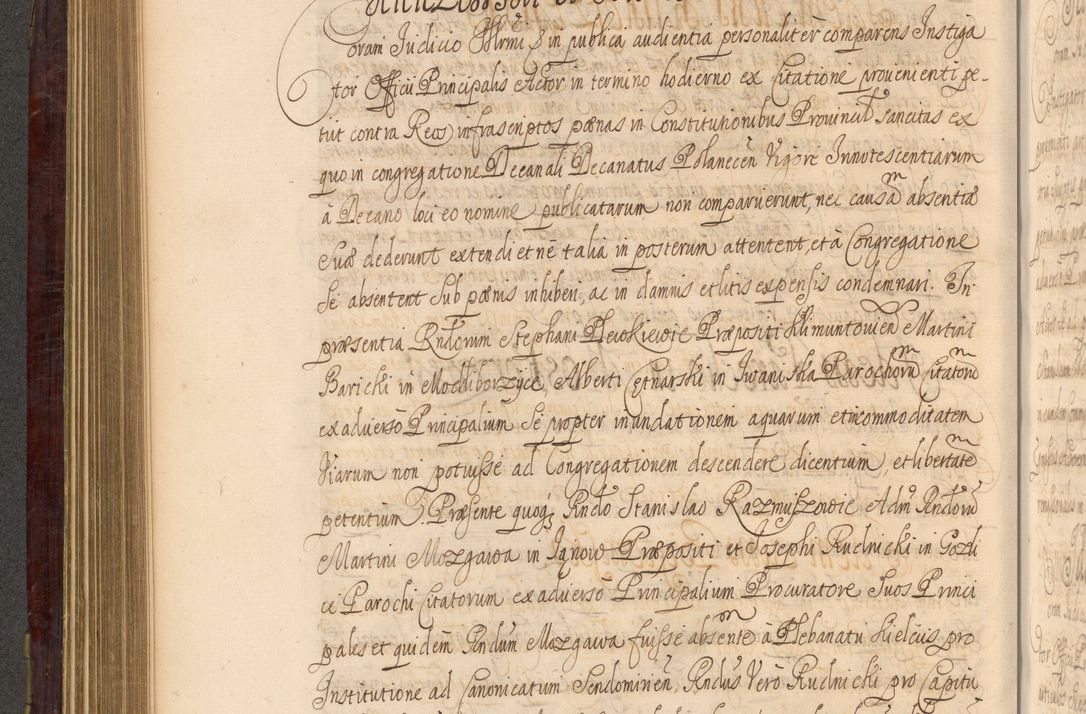 Coram Judicio Illrmi & in publica audientia personaliter comparens Instiga
tor Officii Principalis Actor in termino hodierno ex Citatione provenienti pe-
tiit contra Reos infrascriptos pœnas in Constitutionibus Provincial sancitas ex
quo in congregatione Decanali Decanatus Polanecen Vigore Innotescentiarum
à Decano loci eo nomine publicatarum non comparuerunt, nec causam absentiæ
Suæ dederunt extendi et nè talia in posterum attentent, et à Congregatione
Se absentent Sub pœnis inhiberi, ac in damnis et litis expensis condemnari. In
præsentia Rndorum Stephani Præpositi Klimuntovien Martini
Baricki in Modliborzyce, Alberti Cetnarski in Iwaniska Parochorum Citatorum
ex adverso Principalium Se propter inundationem aquarum et incommoditatem
Viarum non potuisse ad Congregationem descendere dicentium et libertatem
petentium. Præsente quoq Rndo Stanislao Razmuszowic Adm Rndorum
Martini Mozgawa in Præpositi et Josephi Rudnicki in Gozli
ce Parochi Citatorum ex adverso Principalium Procuratore Suos Princi
pales et quidem Rndum Mozgawa fuisse absentem à Plebanatu Kielciis pro
Institutione ad Canonicatum Sendomirien, Rndus Verò Rudnicki pro Capitu